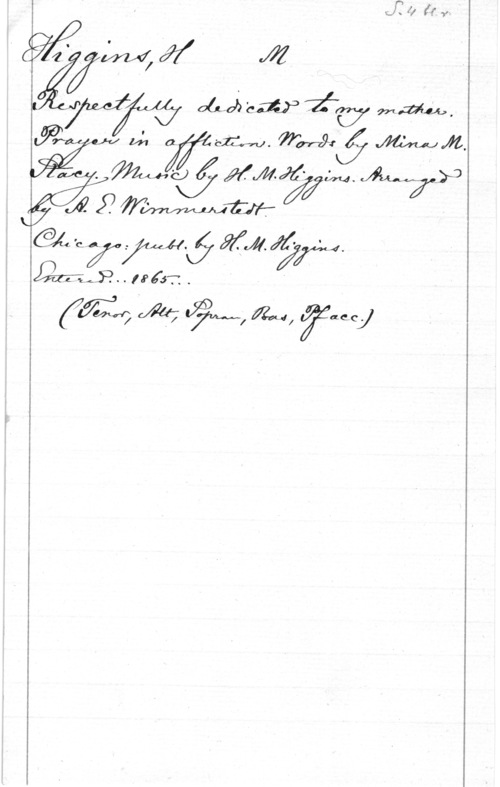 S. 4 H.v.
Higgins, H M
Respectfully dedicated to my mother.
Prayer in affliction. Words by Mina M.
Stacy, Music by H. M. Higgins. Arranged
by A. E. Wimmerstedt
Chicago: publ. by H. M. Higgins.
Entered... 1865...
(Tenor, Alt, Sopran, Bas, Pf acc.)